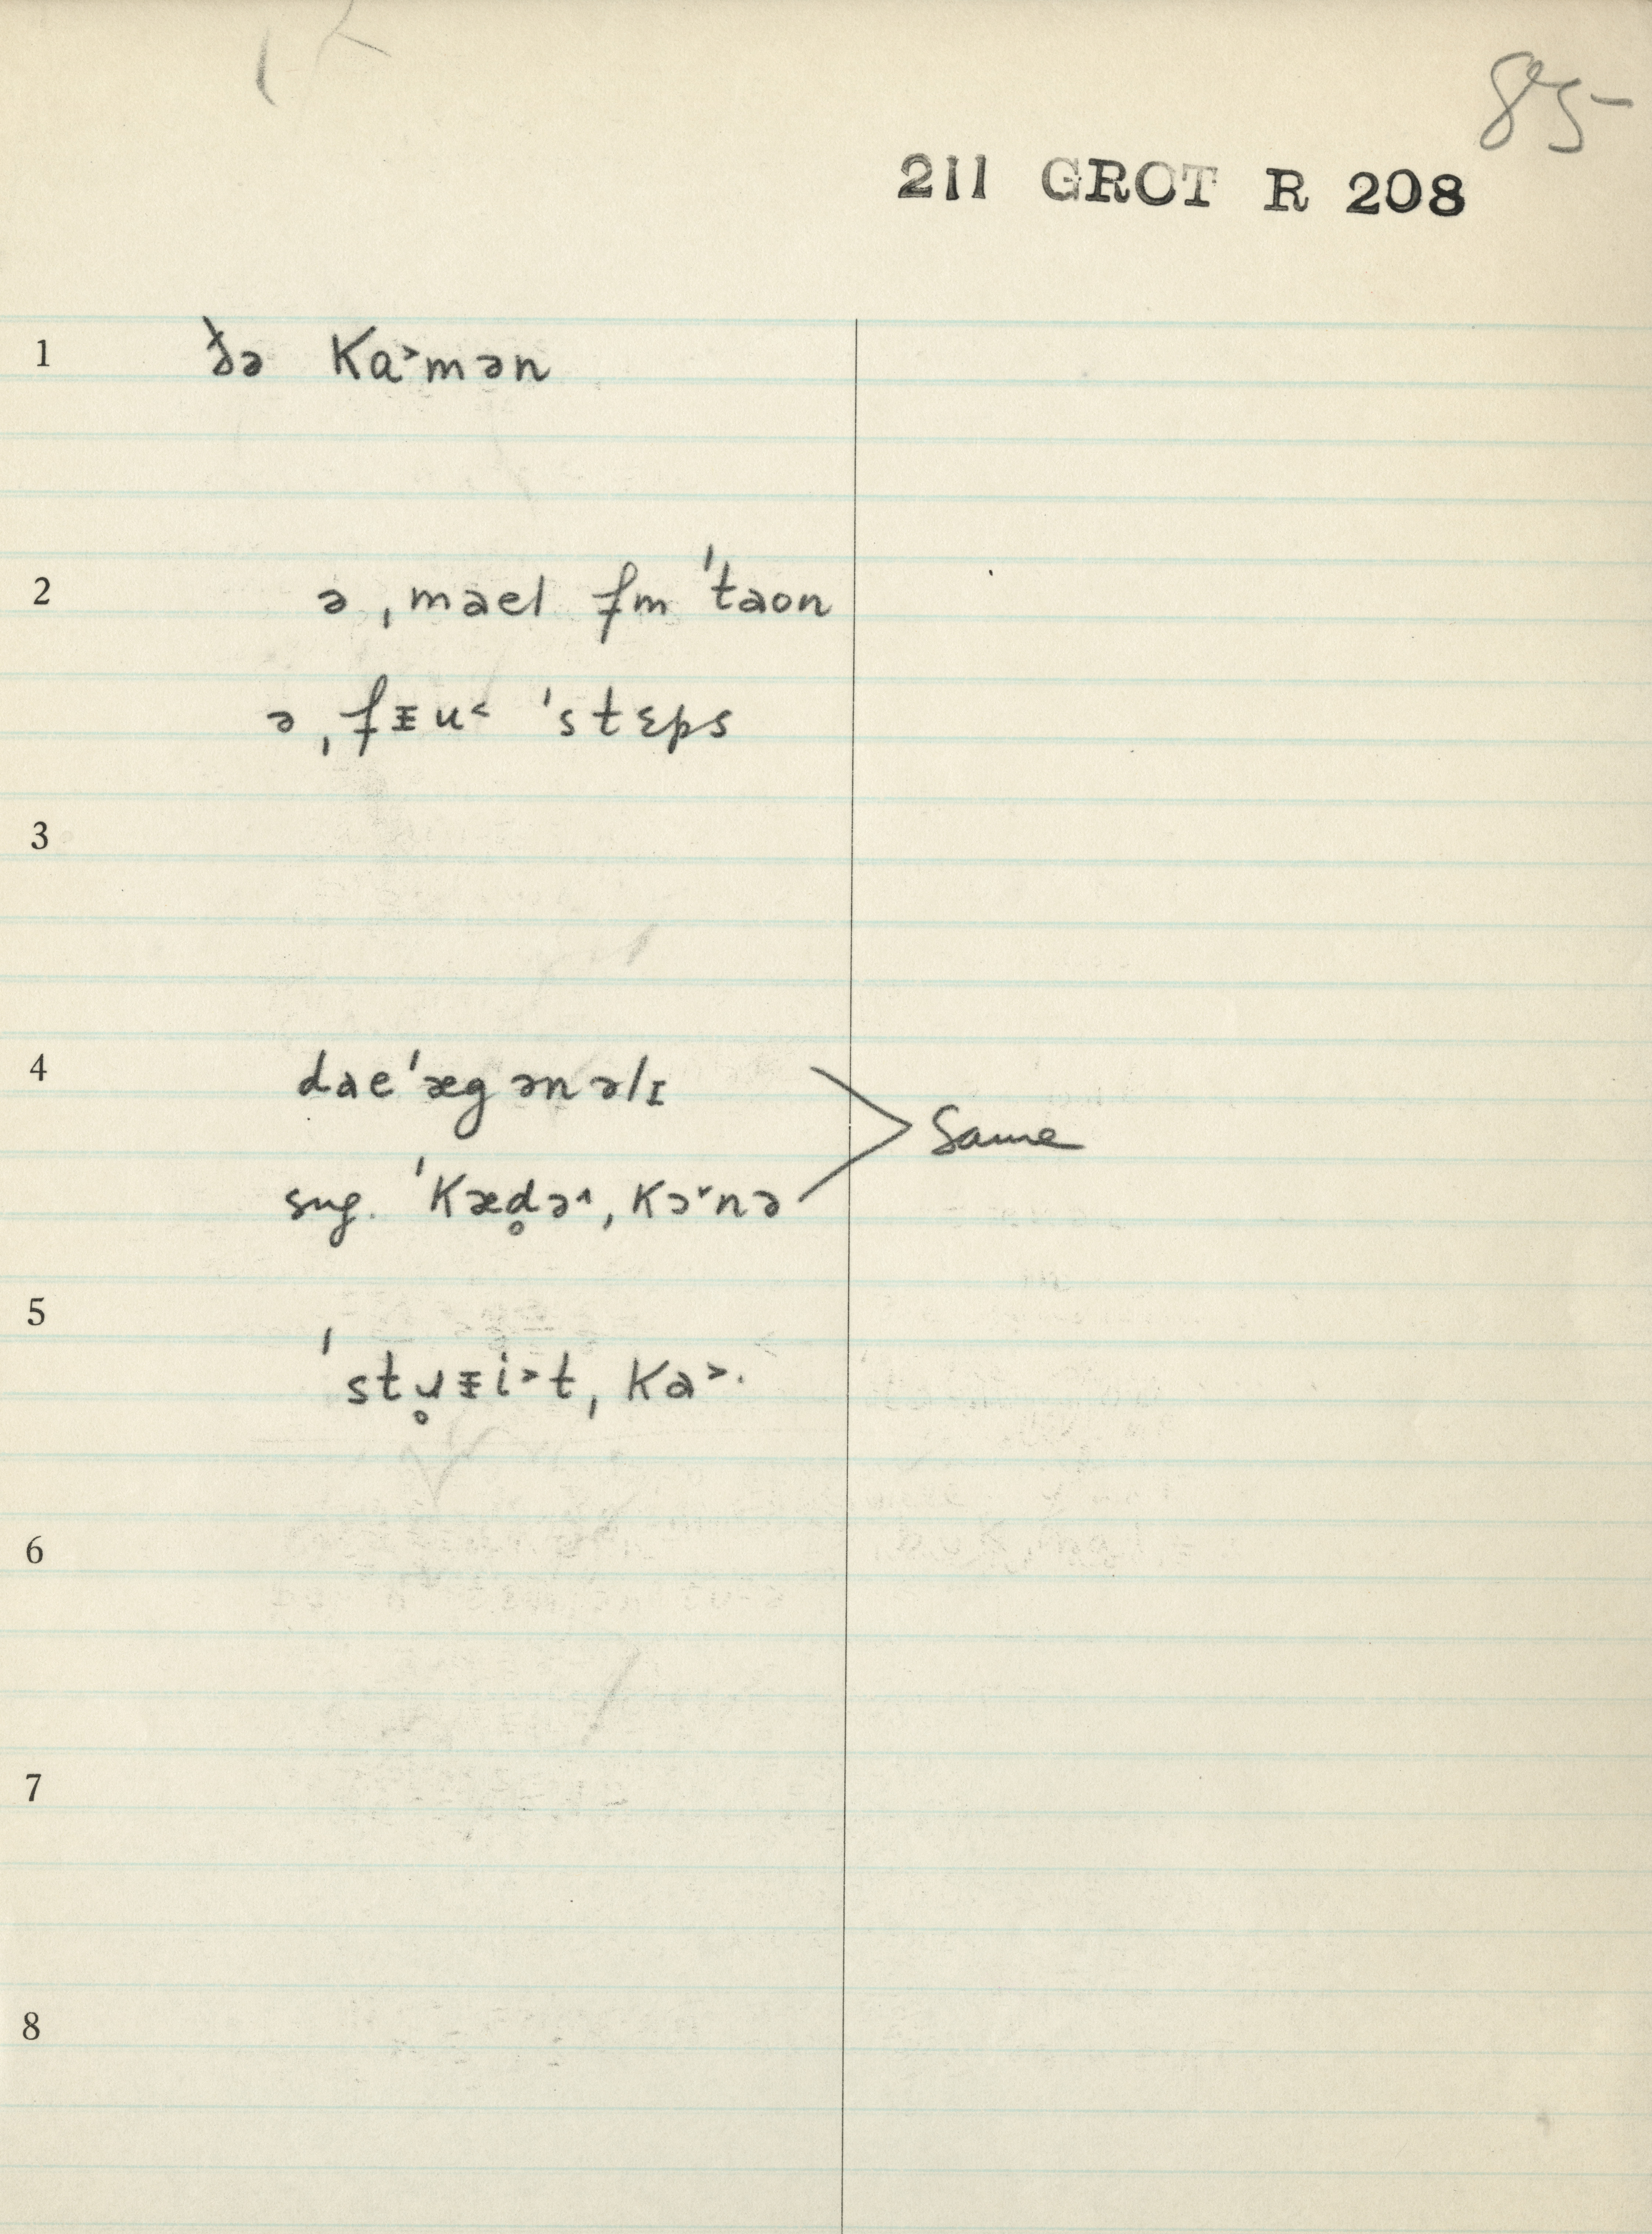 85-
211 GROT R 208
1 ðə Ka˃mən
2 ə ˌmael fm ˈtaon
ə ˌfᵻu˂ ˈstɛps
3
4 daeˈægənəlɪ
Same
sug. ˈKæd̥ə˄ˌKɔ˅nə
5 ˈstɹ̥ᵻi˃tˌKa˃.
6
7
8